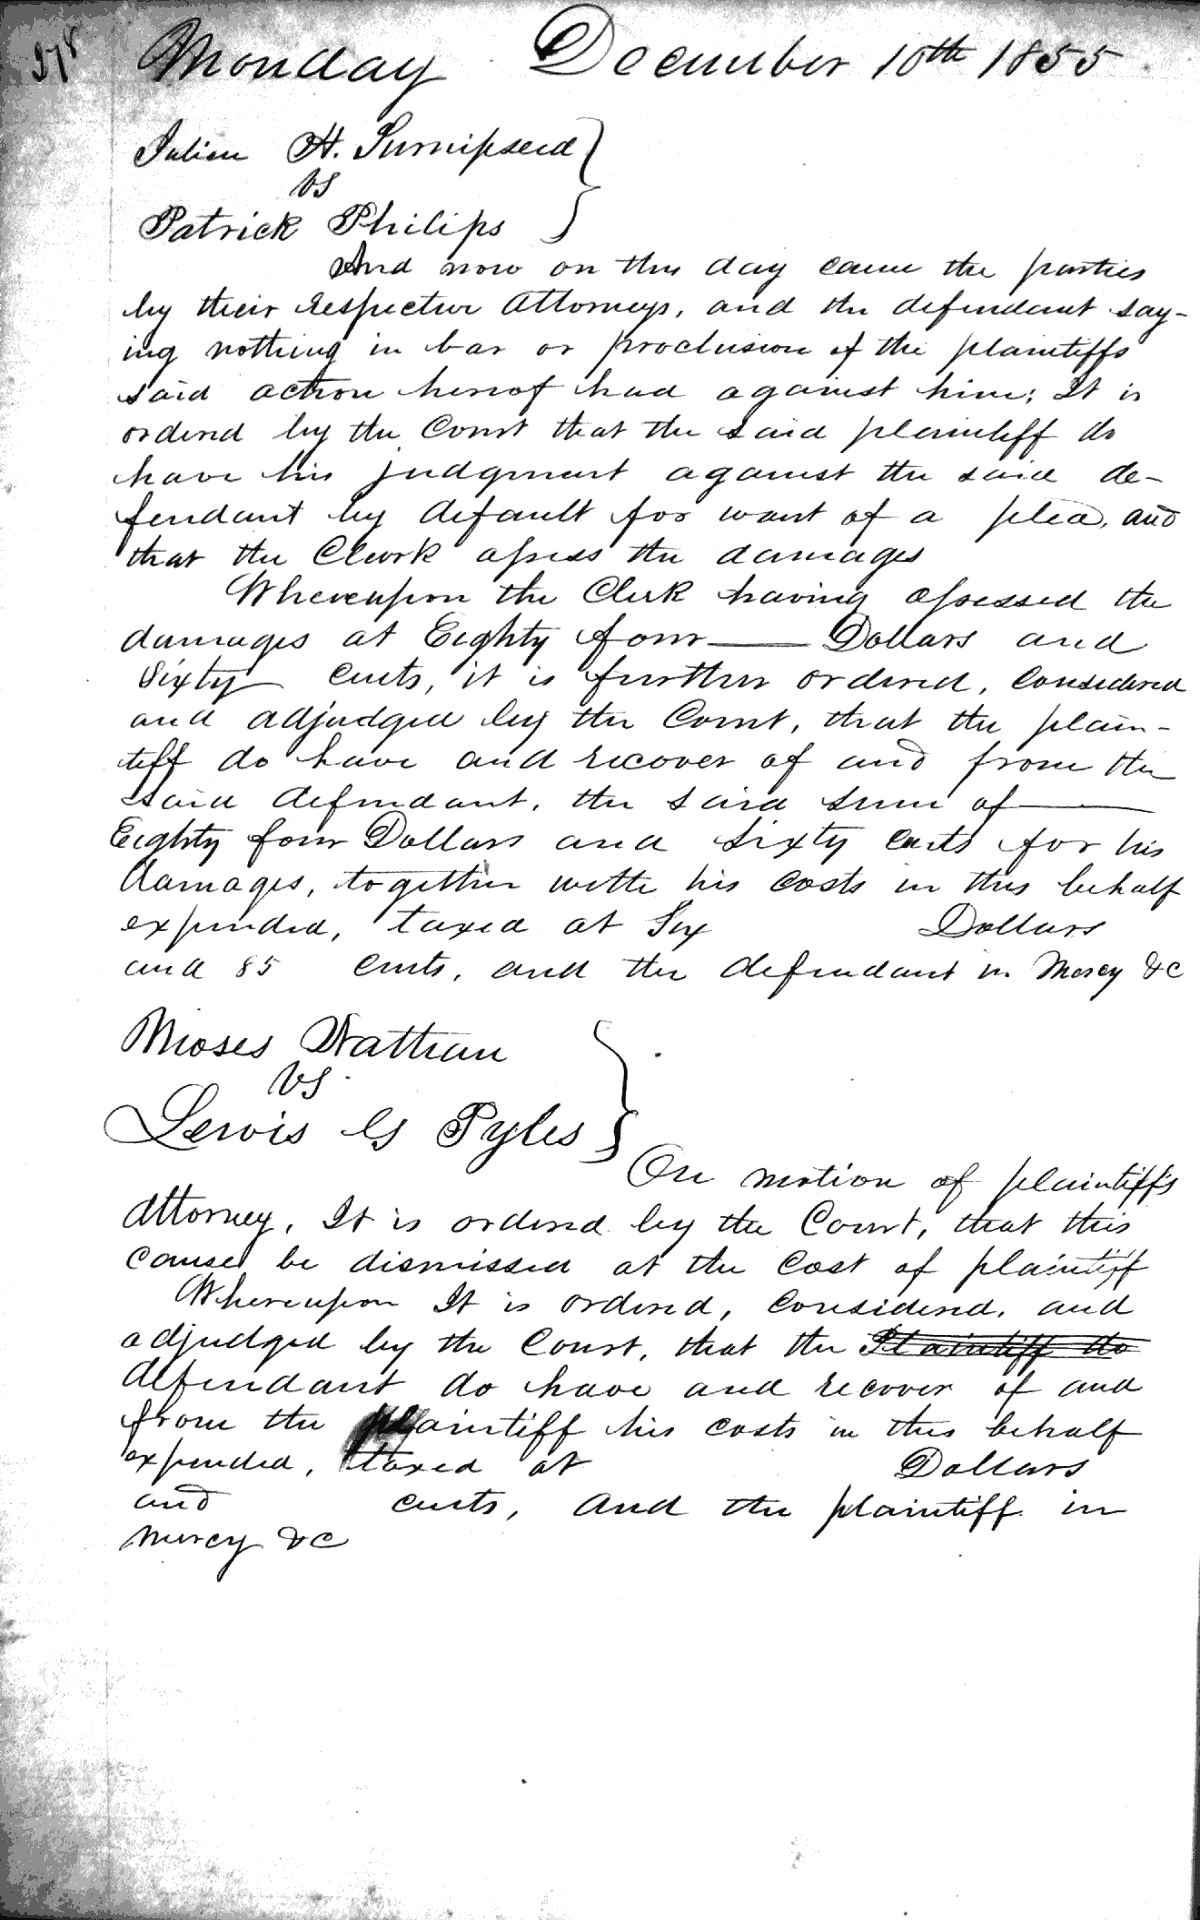 378
Monday December 10th 1855
Julien H. Turnipseed
vs
Patrick Philips
And now on this day came the parties
by their respective attorneys, and the defendant say-
ing nothing in bar or preclusion of the plaintiffs
said action hereof had against him; It is
ordered by the Court that the said plaintiff do
have his judgment against the said de-
fendant by default for want of a plea, and
that the Clerk assess the damages
Whereupon the Clerk having assessed the
damages at Eighty four Dollars and
Sixty cents, it is further ordered, considered
and adjudged by the Court, that the plain-
tiff do have and recover of and from the
said defendant, the said sum of
Eighty four Dollars and Sixty cents for his
damages, together with his costs in this behalf
expended, taxed at Six Dollars
and 85 cents, and the defendant in Mercy &c
Moses Nathan
vs
Lewis G Pyles
On motion of plaintiffs
attorney, It is ordered by the Court, that this
cause be dismissed at the Cost of plaintiff
Whereupon It is ordered, Considered, and
adjudged by the Court, that the Plaintiff do
defendant do have and recover of and
from the plaintiff his costs in this behalf
expended, taxed at Dollars
and cents, and the plaintiff in
mercy &c